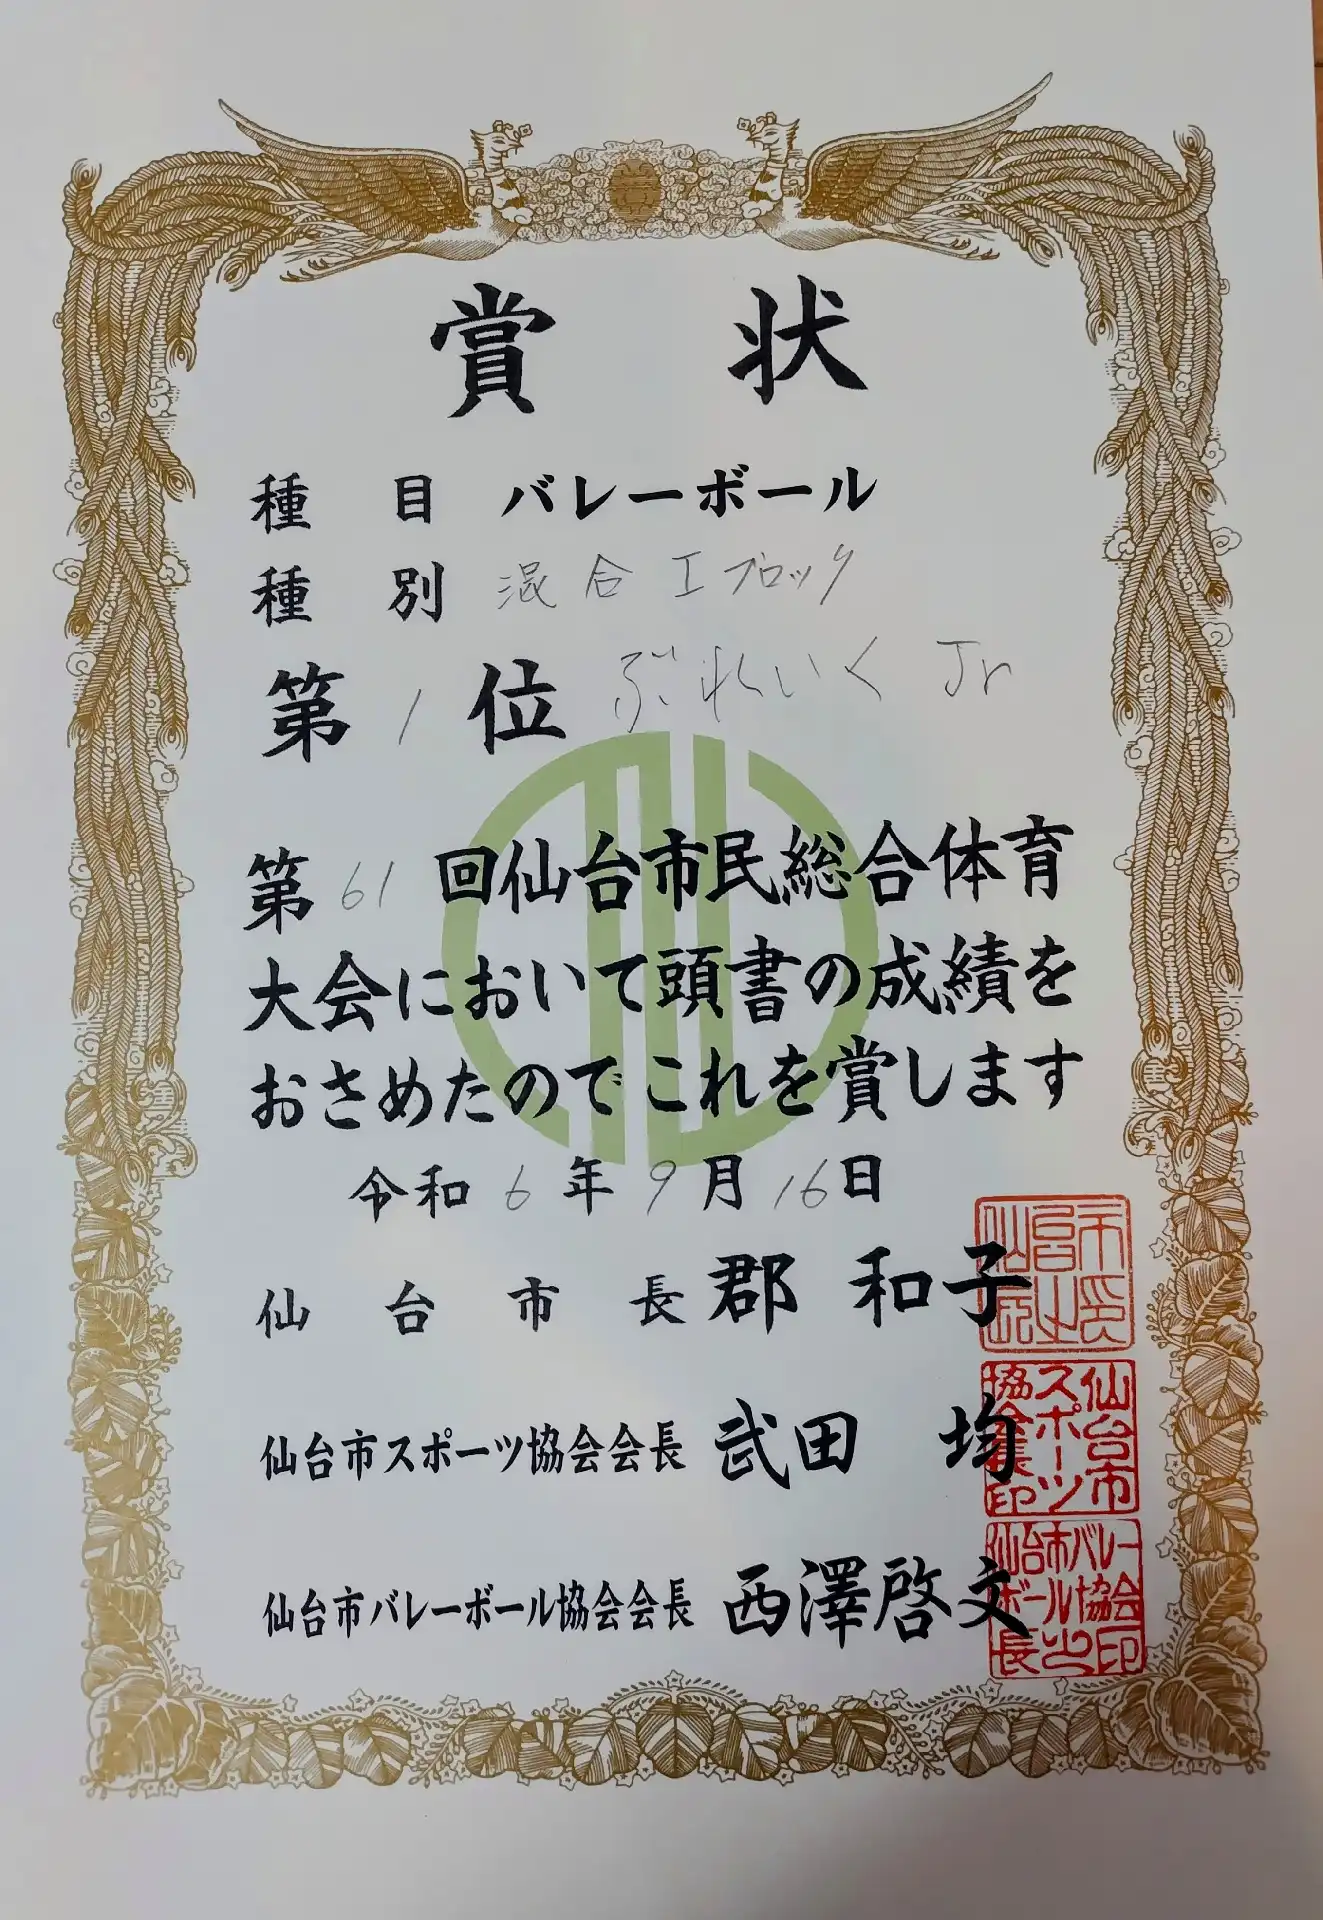 賞状
種目 バレーボール
種別 混合Iブロック
第1位 ぶれいくJr
第61回仙台市民総合体育
大会において頭書の成績を
おさめたのでこれを賞します
令和6年9月16日
仙台市長 郡 和子
仙台市長之印
仙台市スポーツ協会会長 武田 均
仙台市スポーツ協会会長印
仙台市バレーボール協会会長 西澤啓文
仙台市バレーボール協会長之印